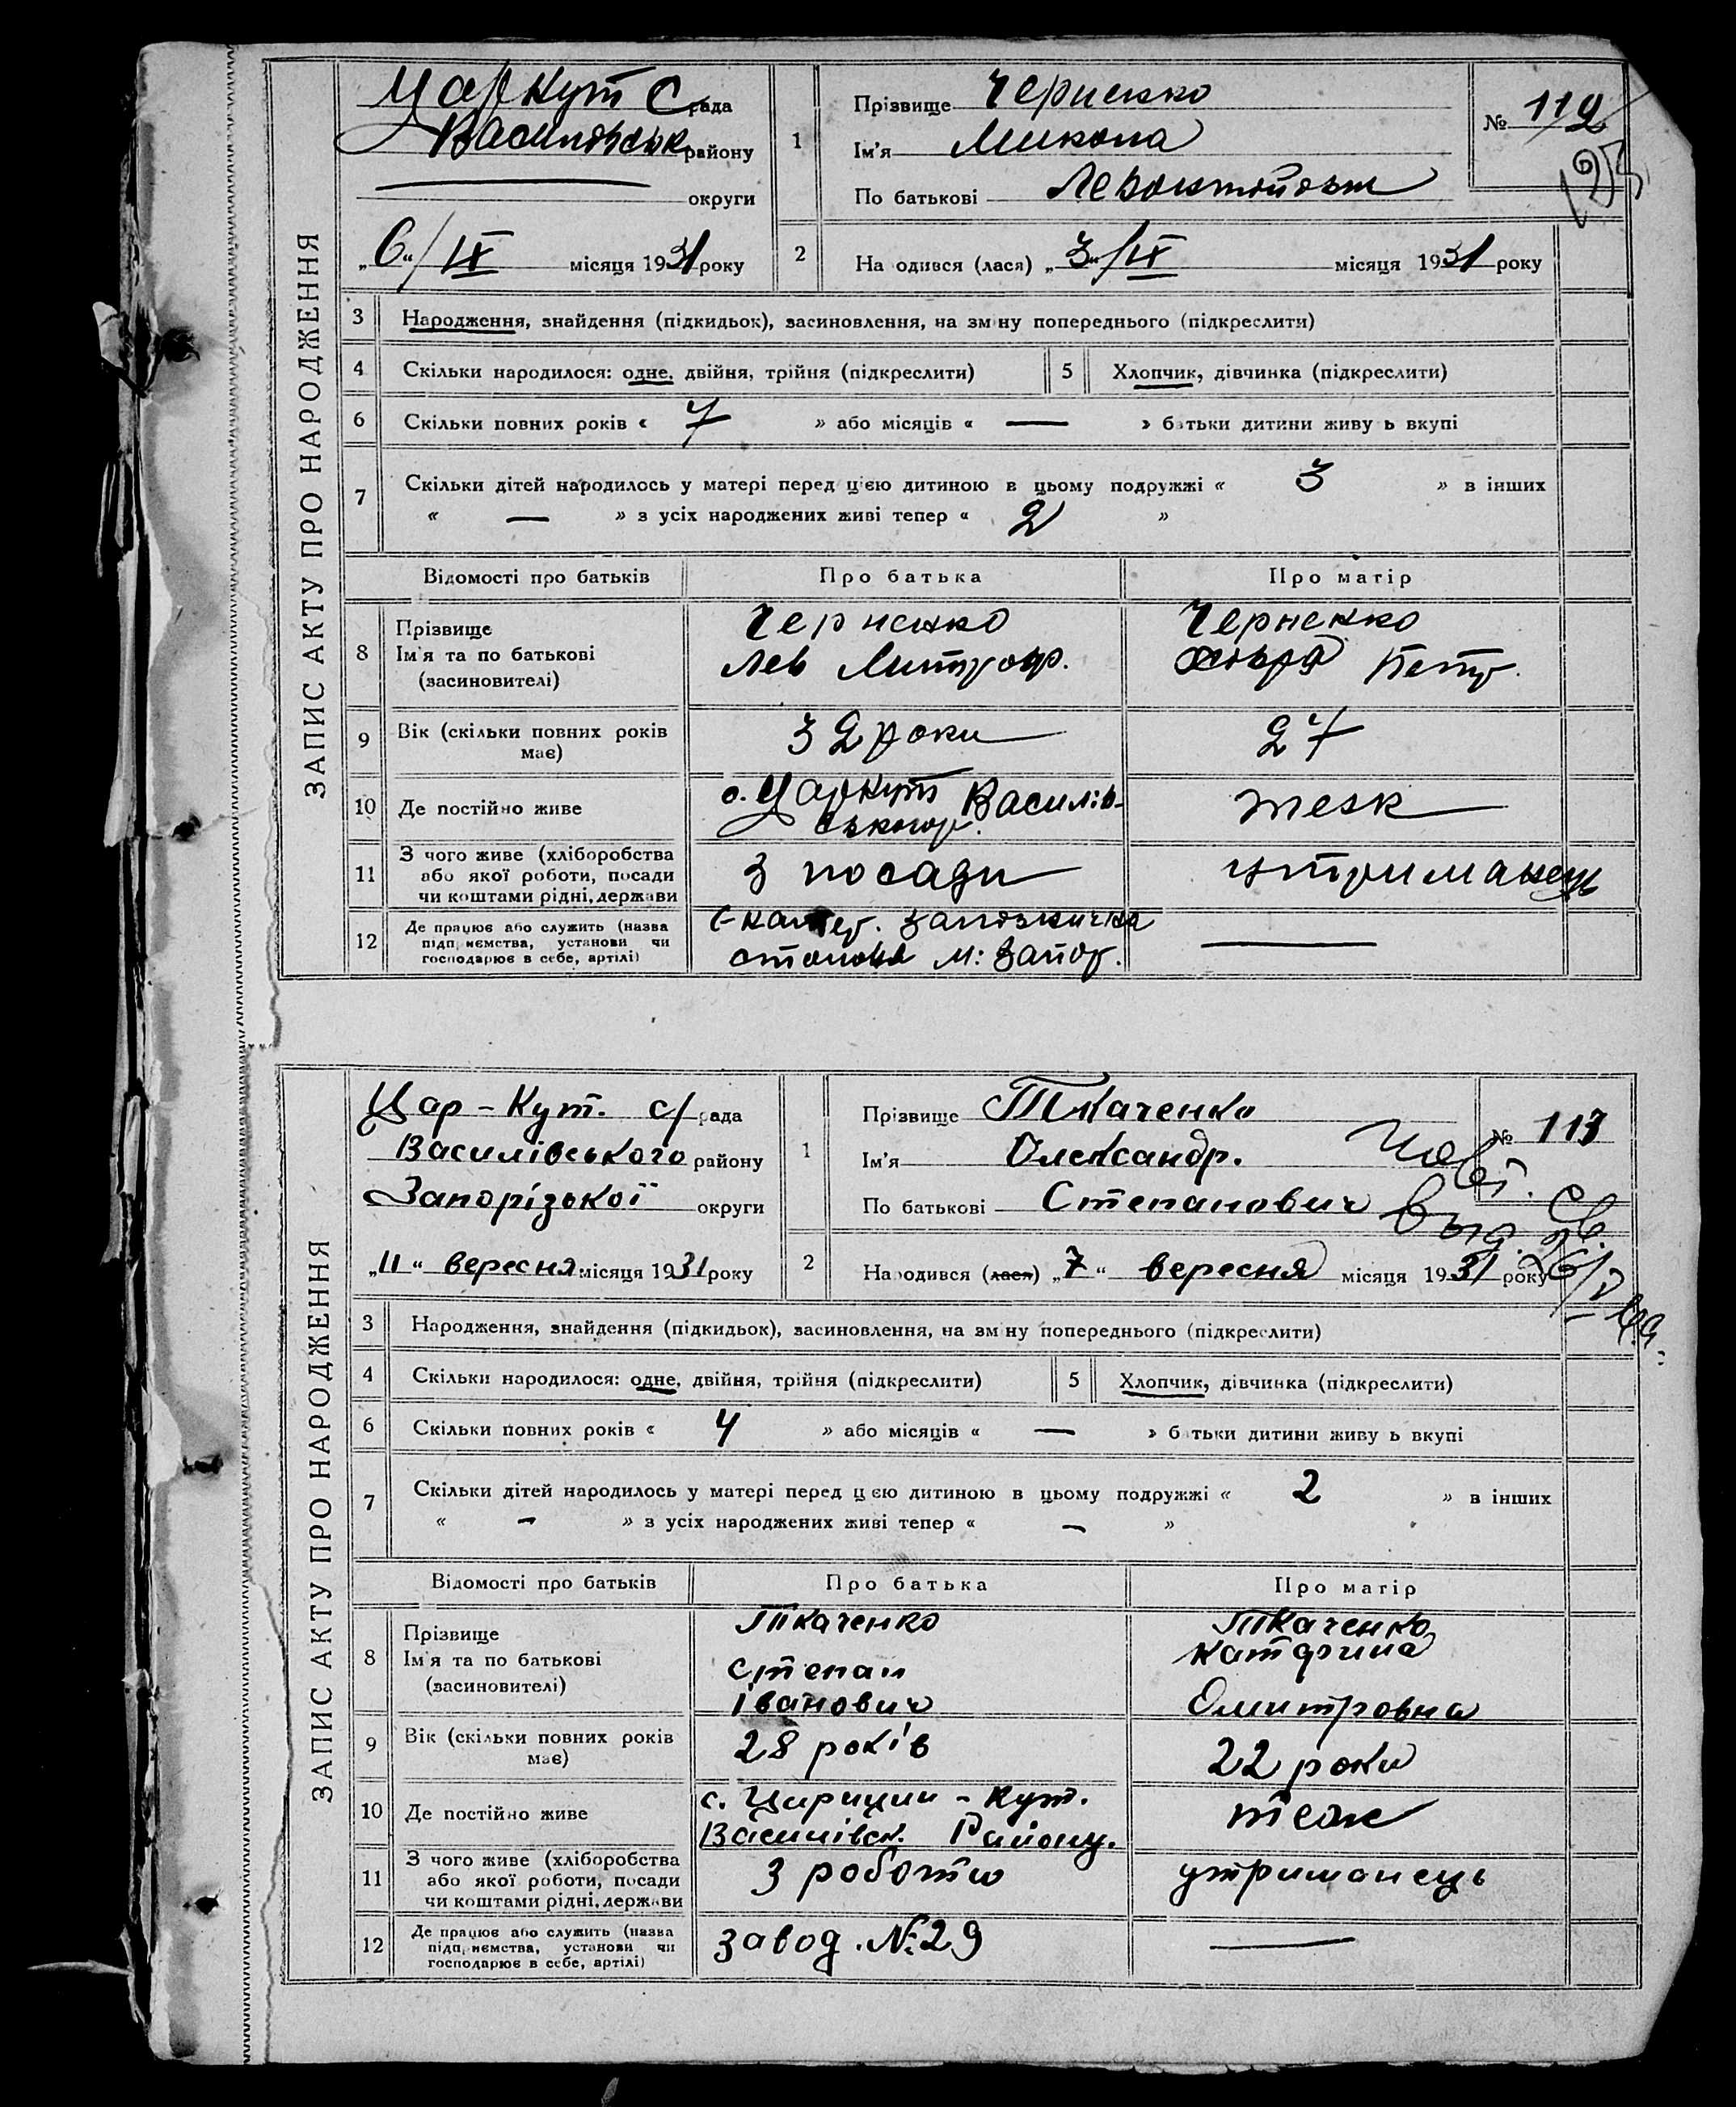 ЗАПИС АКТУ ПРО НАРОДЖЕННЯ
Царкут С рада
Василівськ району
округи
„6“/IX місяця 1931 року
1 Прізвище Черненко
Ім'я Микола
По батькові
№ 112
125
2 На одився (лася) „3“/IX місяця 1931 року
3 Народження, знайдення (підкидьок), засиновлення, на зміну попереднього (підкреслити)
4 Скільки народилося: одне, двійня, трійня (підкреслити) 5 Хлопчик, дівчинка (підкреслити)
6 Скільки повних років « 7 » або місяців « — » батьки дитини живу ь вкупі
7 Скільки дітей народилось у матері перед цією дитиною в цьому подружжі « 3 » в інших
« — » з усіх народжених живі тепер « 2 »
Відомості про батьків Про батька Про матір
8 Прізвище Ім'я та по батькові (засновителі)
Черненко Черненко
Лев Петр.
9 Вік (скільки повних років має) 32 роки 27
10 Де постійно живе с. Царкут Василів- теж
ського р.
11 З чого живе (хліборобства або якої роботи, посади чи коштами рідні, держави з посади утриманець
12 Де працює або служить (назва підприємства, установи чи господарює в себе, артілі) м. Запор. —
ЗАПИС АКТУ ПРО НАРОДЖЕННЯ
Цар-Кут. с/рада
Василівського району
Запорізької округи
„11“ вересня місяця 1931 року
1 Прізвище Ткаченко
Ім'я Олександр.
По батькові Степанович
№ 113
выд. св.
2 Народився (лася) „7“ вересня місяця 1931 року
3 Народження, знайдення (підкидьок), засиновлення, на зміну попереднього (підкреслити)
4 Скільки народилося: одне, двійня, трійня (підкреслити) 5 Хлопчик, дівчинка (підкреслити)
6 Скільки повних років « 4 » або місяців « — » б тьки дитини живу ь вкупі
7 Скільки дітей народилось у матері перед цією дитиною в цьому подружжі « 2 » в інших
« — » з усіх народжених живі тепер « — »
Відомості про батьків Про батька Про матір
8 Прізвище Ім'я та по батькові (засиновителі)
Ткаченко Ткаченко
Степан Катерина
Іванович Дмитровна
9 Вік (скільки повних років має) 28 років 22 роки
10 Де постійно живе с. Царицин-Кут. теж
Василівск. Району.
11 З чого живе (хліборобства або якої роботи, посади чи коштами рідні, держави з роботи утриманець
12 Де працює або служить (назва підприємства, установи чи господарює в себе, артілі) завод. №29 —